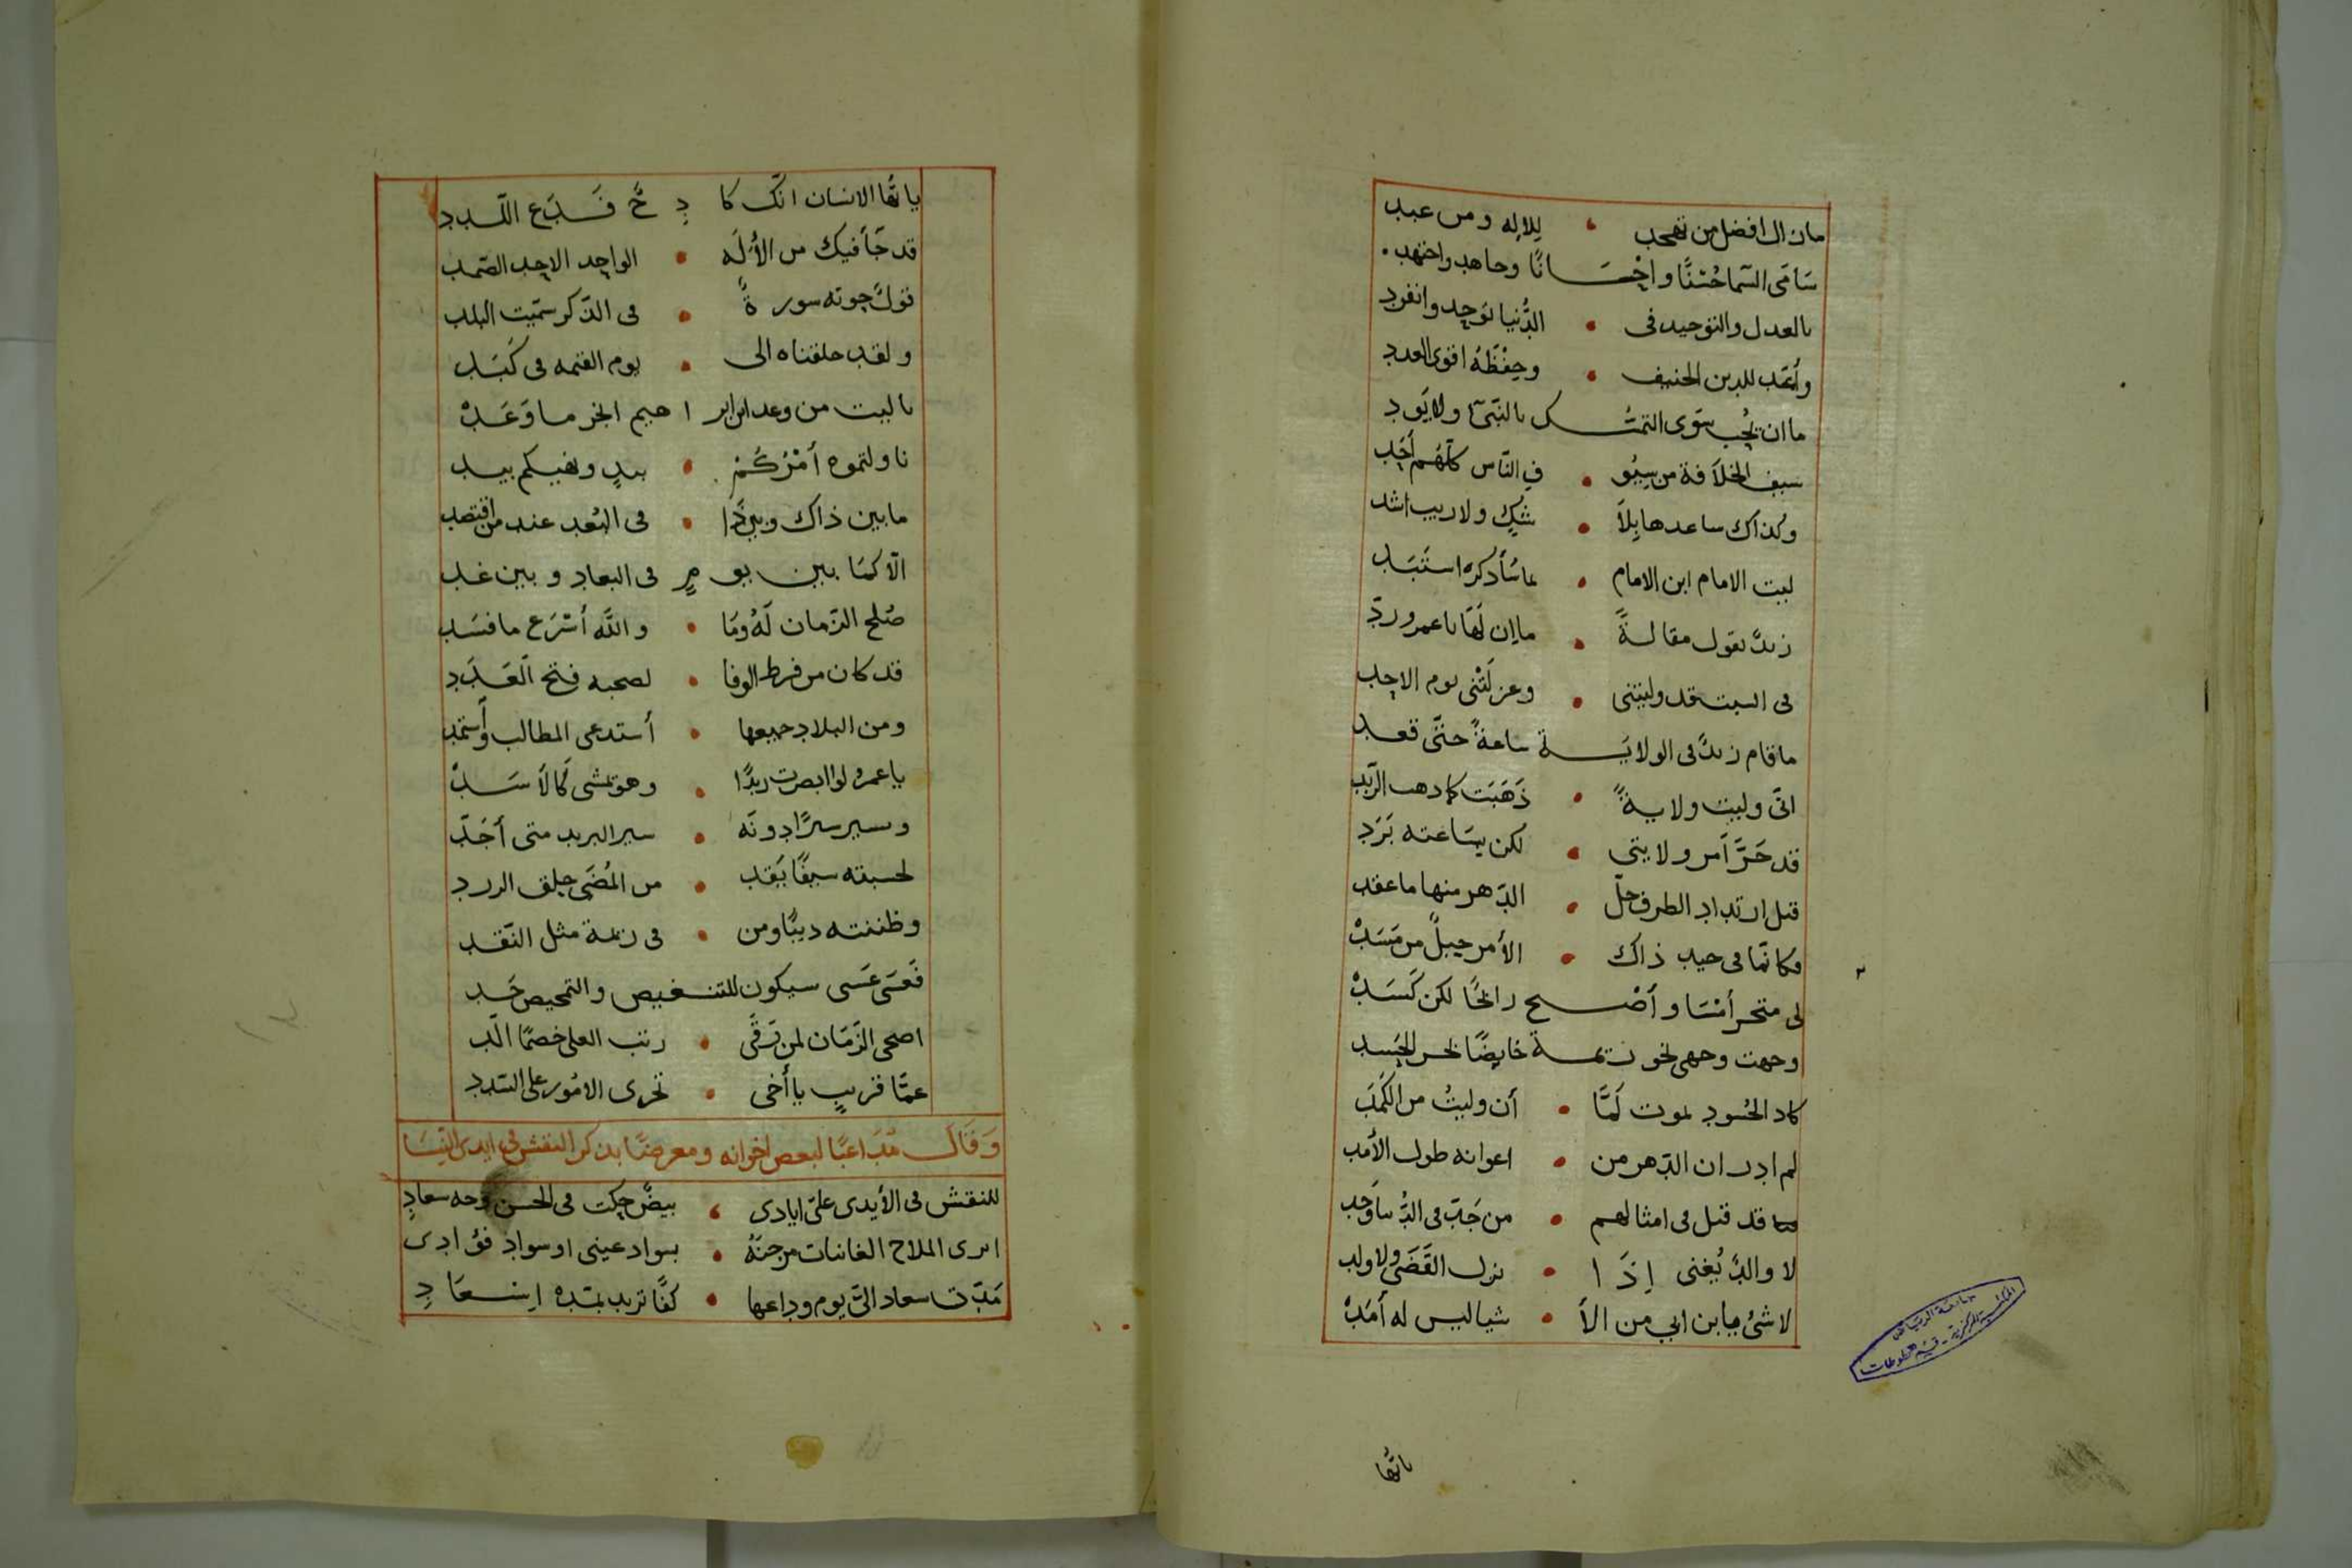 مازال افضل من تهجد • للاله ومن عبد
سامى السما حُسْنًا واحْسَانًا وجاهد واجتهد •
بالعدل والتوحيد فى • الدُّنيا توحد وانفرد
وأعَد للدين الحنيف • وحِفْظَهُ اقوى العدد
ما ان يُحِب سَوى التمسُّك بالنَبّى ولا يَود
سيف الخلافة من سيُو • فِ النّاس كلّهُم أحَد
وكذاك ساعدها بِلا • شكٍ ولا ريب اشد
ليت الامام ابن الامام • بما سَأذكره استَبَد
زيدٌ يقول مقالةً • ما إن لَهَا يا عمرو ردّ
فى السبت قد وليتنى • وعزلتَنى يوم الاحد
ما قام زيدٌ فى الولايَة ساعةً حتَّى قعد
انّى وليت ولايةً • ذَهَبَت كما ذهب الزَبَد
قد حَرَّ أمر ولايتي • لكن بسَاعته بَرَد
قبل ارتداد الطرف حلّ • الدّهر منها ما عقد
فكانّما فى جيد ذاك • الأمر حبلٌ من مَسَدْ
لى متجر أمْسَا وأصْبح رابحًا لكن كَسَدْ
وجهت وجهى نحو تربمة خايضًا بحر الحَسد
كاد الحُسود يموت لَمَّا • أن وليتُ من الكَمَد
لم ادر ان الدّهر من • اعوانه طول الأمَد
قد قيل فى امثالهم • من جَدّ فى الدُّنيا وَجد
لا والدٌ يُغنى إذَا • نزل القَضَى ولا ولد
لا شئُ يا بن ابي من الأ • شيا ليس له أمَدْ
ياتُّها
يا تُّها الانسان انّك كا دِ حٌ فَدَع اللّدد
قد جَأ فيك من الأُلَه • الواحِد الاحِد الصّمد
قولٌ حوته سورةٌ • فى الذّكر سمّيت البلد
ولقد خلقناه الى • يوم القيمه فى كَبَد
يا ليت من وعد ابن ابر اهيم الخير ما وَعَدْ
ناولتموه أمْرُكُمْ • بيدٍ ونفيكم بيد
ما بين ذاك وبين ذَا • فى البُعد عند من اقتصد
الّا كمَا بين يو مٍ فى البعاد وبين غد
صُلح الزّمان لَهُ ومَا • والله أسْرَع ما فسَد
قد كان من فرط الوفا • لصحبه فتح العَدَد
ومن البلاد جميعها • أستدعى المطالب وأستمد
يا عمرو لو ابصرت زيدًا • وهو يمشى كَالأسَدْ
ويسير سيرًا دونَه • سير البريد متى أجَدّ
لحسبته سيفًا يَقد • من المُضَى حلق الزرد
وظننته ذيبًا ومن • فى زيمة مثل النَّقد
فَعسَى عَسَى سيكون للتنغيص والتمحيص حَد
اضحى الزّمَان لمن تَرقَّى • رتب العلى خصمًا ألَدّ
عمَّا قريبٍ يا أخى • تجرى الامُور على السّدد
وَقَالَ مُدَاعبًا لبعض اخوانه ومعرضًا بذكر النقش فى ايدى النِسَا
للنقش فى الأيدى علىّ ايادى • بيضٌ حكت فى الحسن وجه سعادِ
افدى الملاح الغانيات مرجّنَهُ • بسواد عينى او سواد فوُادى
مَدّت سعاد الىَّ يوم وداعها • كفًّا تريد بمَدّه اسْعَادِ
جامعة الرياض
المكتبة المركزية - قسم المخطوطات